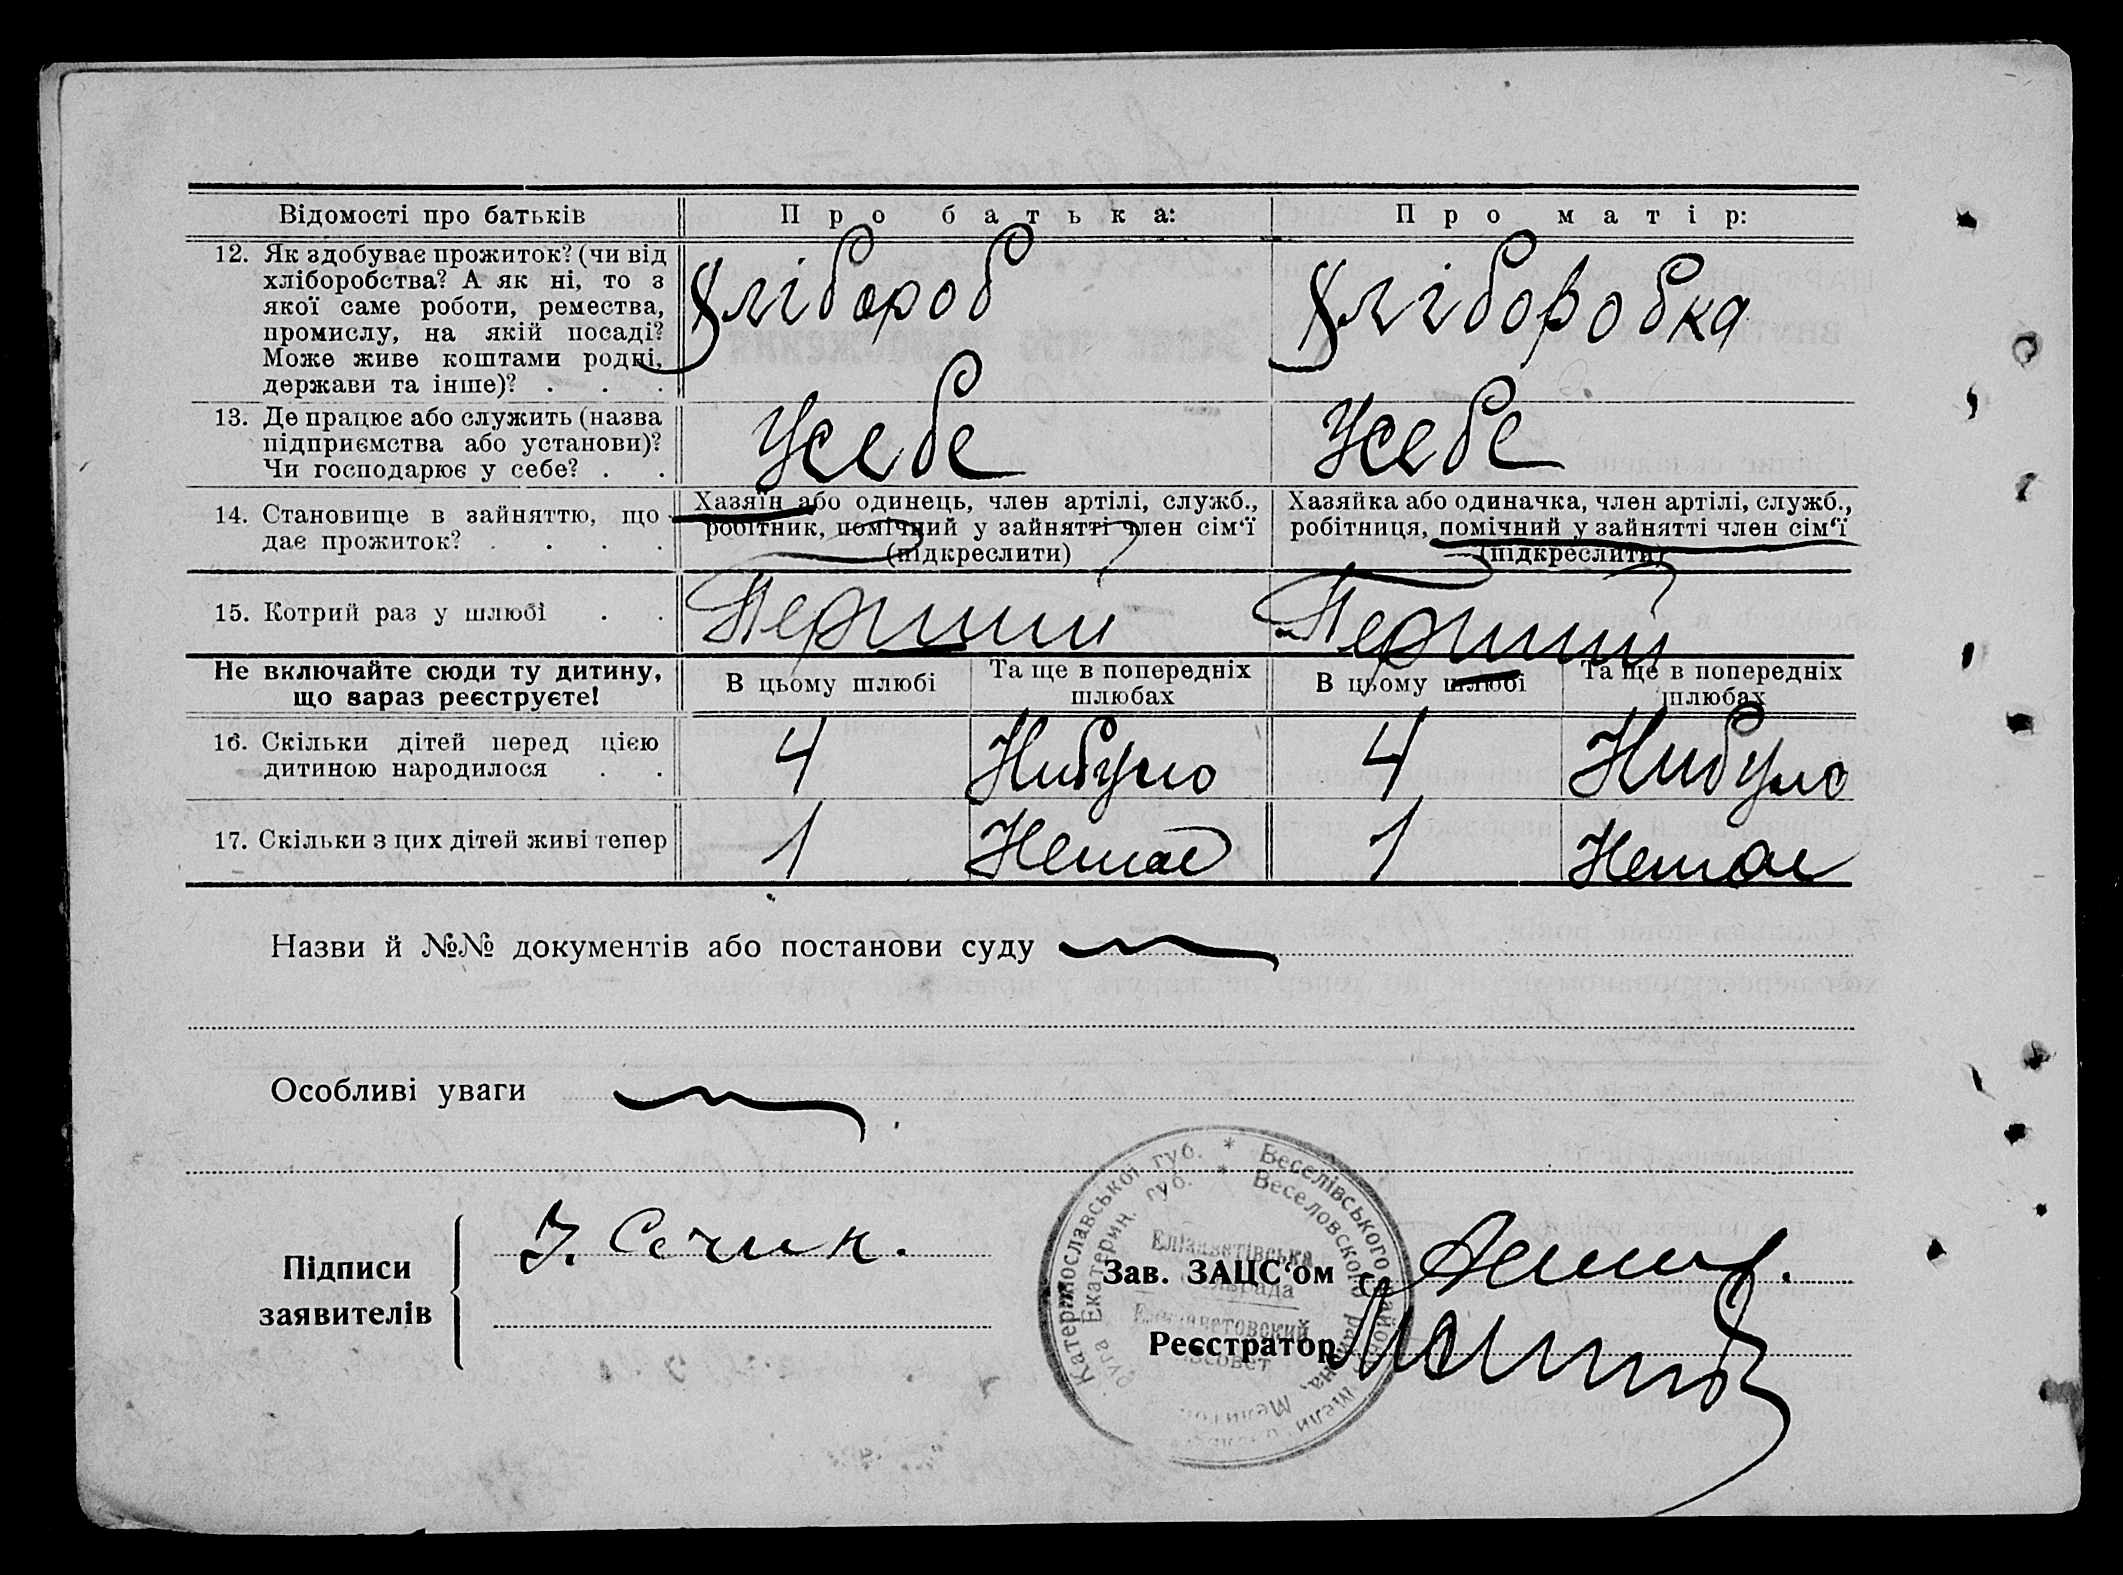 Відомості про батьків
Про батька:
Про матір:
12. Як здобуває прожиток? (чи від
хліборобства? А як ні, то з
якої саме роботи, ремества,
промислу, на якій посаді?
Може живе коштами родні,
держави та інше)? . . .
Хлібороб
Хліборобка
13. Де працює або служить (назва
підприємства або установи)?
Чи господарює у себе? . .
Усебе
Усебе
14. Становище в зайняттю, що
дає прожиток? . . . .
Хазяїн або одинець, член артілі, служб.,
робітник, помічний у зайнятті член сім'ї
(підкреслити)
Хазяйка або одиначка, член артілі, служб.,
робітниця, помічний у зайнятті член сім'ї
(підкреслити)
15. Котрий раз у шлюбі . .
Перший
Перший
Не включайте сюди ту дитину,
що зараз реєструєте!
В цьому шлюбі
Та ще в попередніх
шлюбах
В цьому шлюбі
Та ще в попередніх
шлюбах
16. Скільки дітей перед цією
дитиною народилося . .
4
Нибуло
4
Нибуло
17. Скільки з цих дітей живі тепер
1
Немає
1
Немає
Назви й №№ документів або постанови суду
Особливі уваги
Підписи
заявителів
І. Сечин.
Катеринославської губ. * Веселівського району
Екатерин. губ. * Веселовского района, Мелитоп.
Єлізаветівська
сільрада
Елизаветовский
сельсовет
Зав. ЗАЦС'ом
Реєстратор